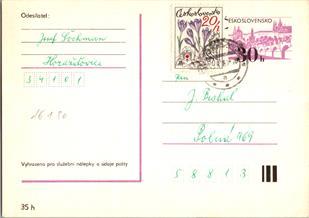 Odesílatel:
Josef Sochman
Horažďovice
34101
16 1 80
Vyhrazeno pro služební nálepky a údaje pošty
35 h
Československo
20h
ČESKOSLOVENSKO
30 h
Pan
J.
Polná 469
58813